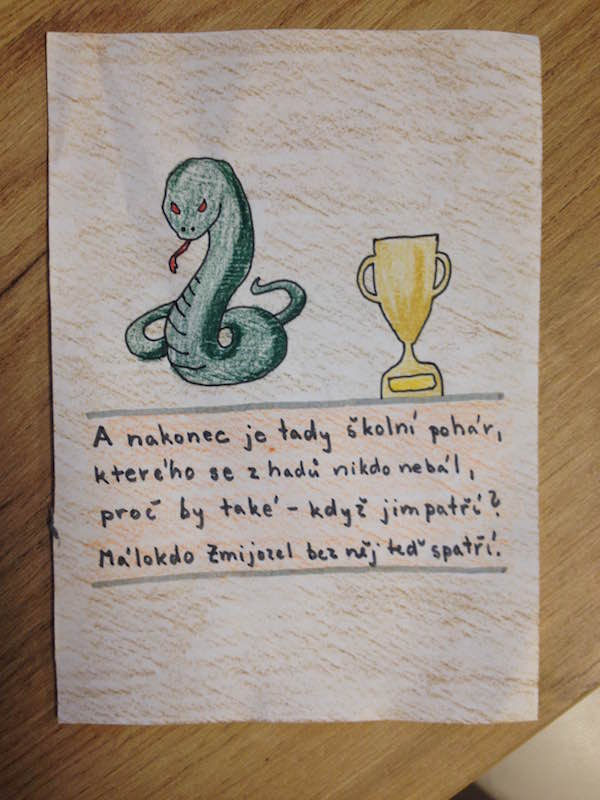 A nakonec je tady školní pohár,
kterého se z hadů nikdo nebál,
proč by také - když jim patří?
Málokdo Zmijozel bez něj teď spatří.